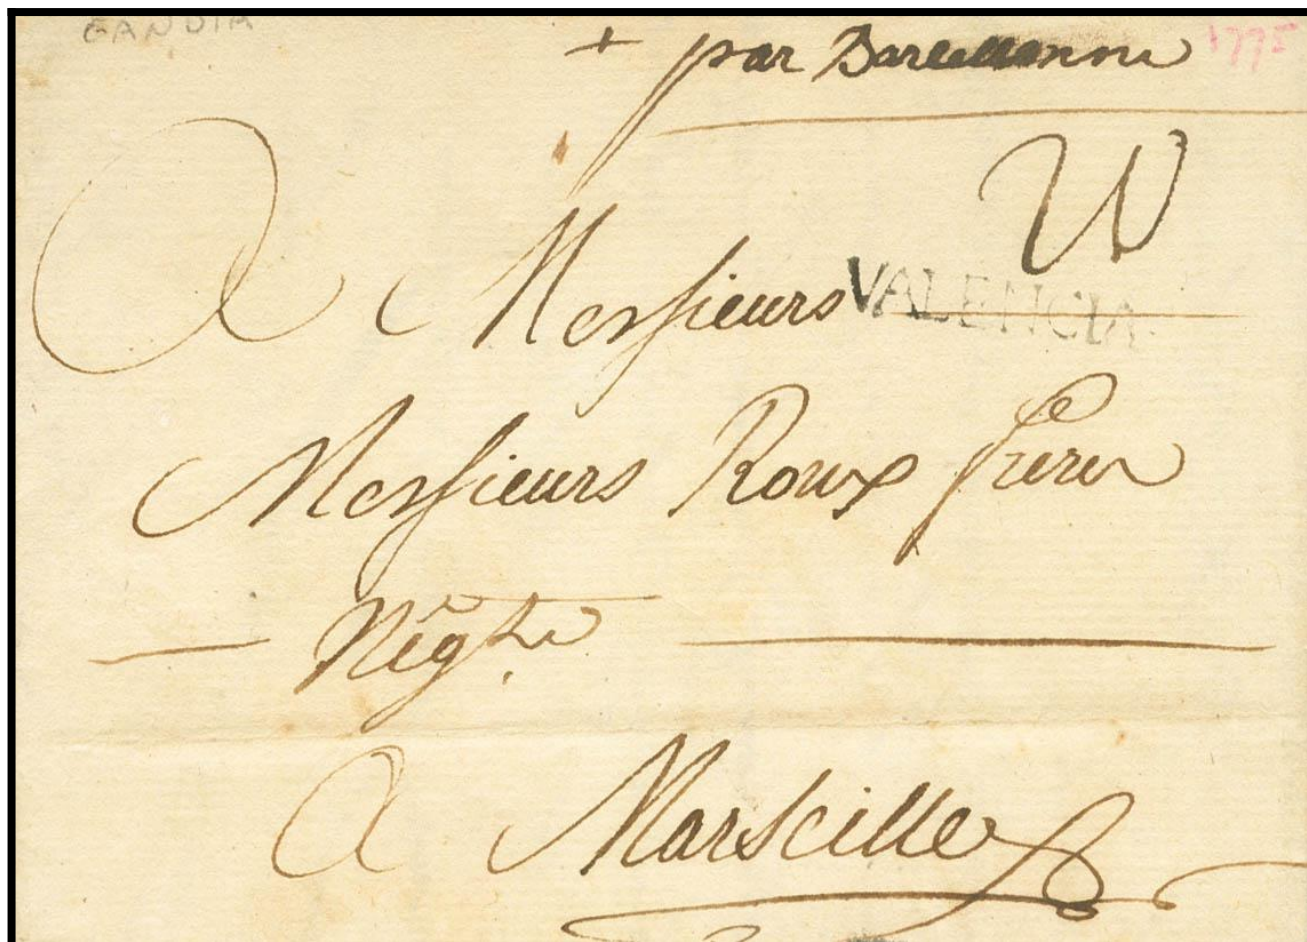 GANDIA 1775
+ par Barcelonne
W
A Messieurs VALENCIA
Messieurs Roux freres
Négts
A Marseille